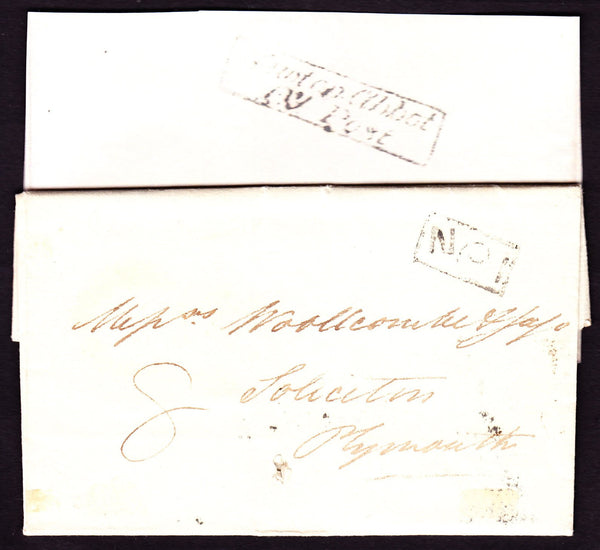 Abbot
PY Post
No 1
Messrs Woollcombe &
8 Solicitors
Plymouth